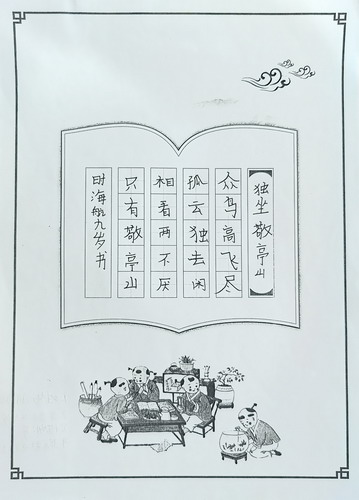 独坐敬亭山
众鸟高飞尽
孤云独去闲
相看两不厌
只有敬亭山
时海航九岁书